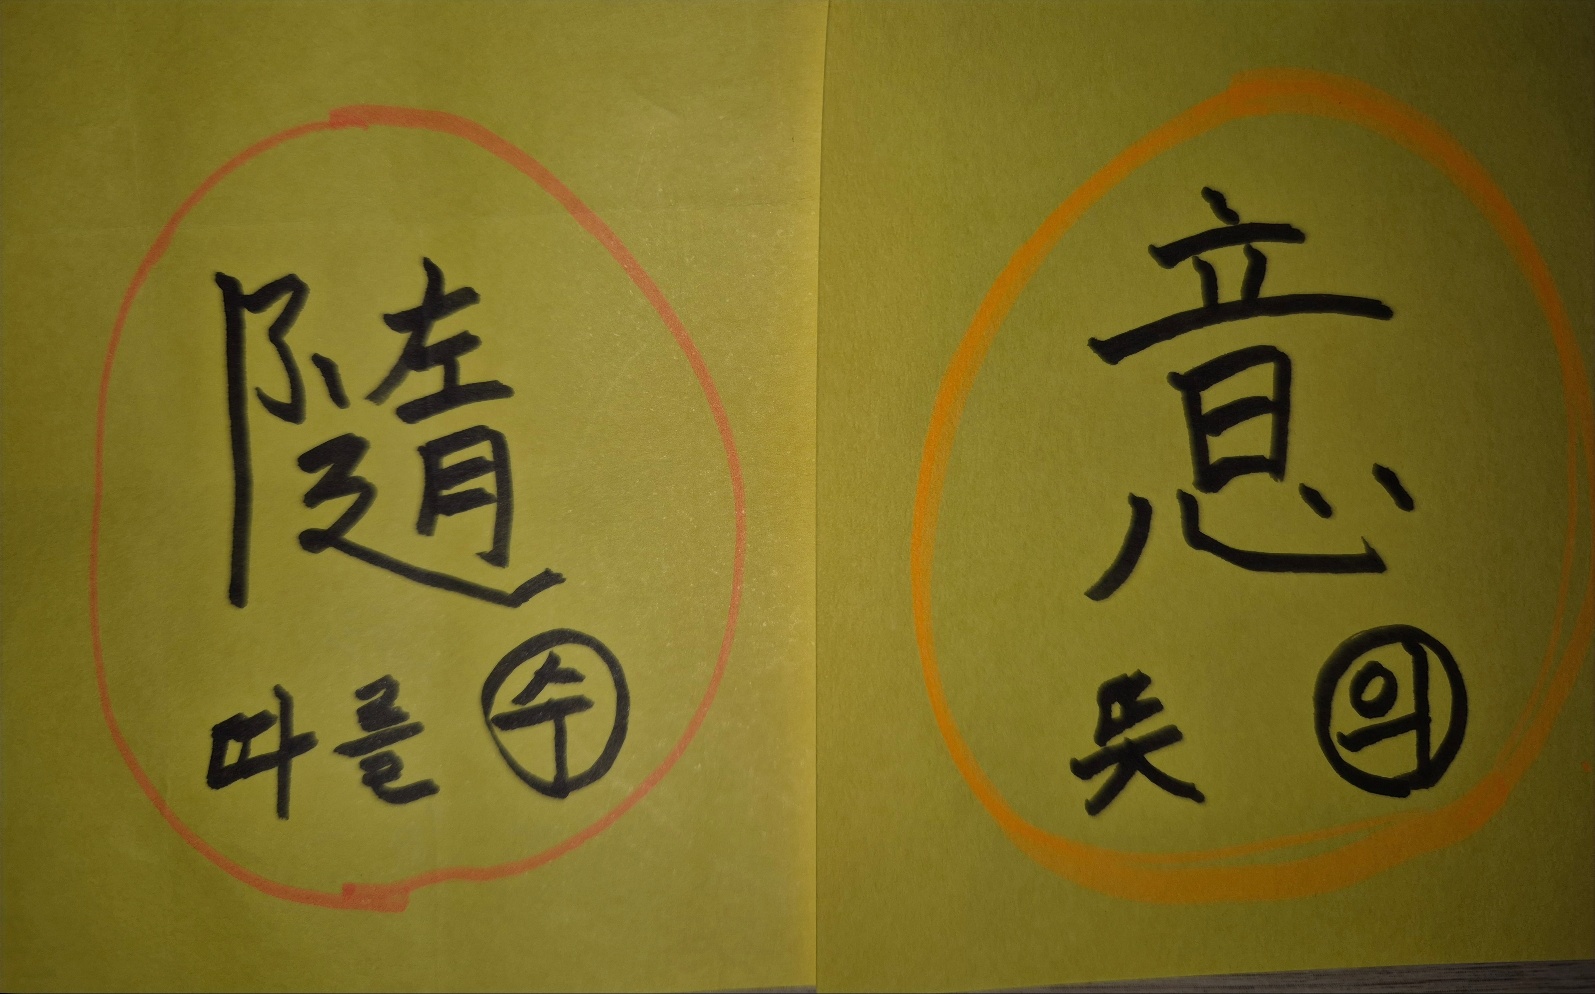 隨
따를 수
意
뜻 의